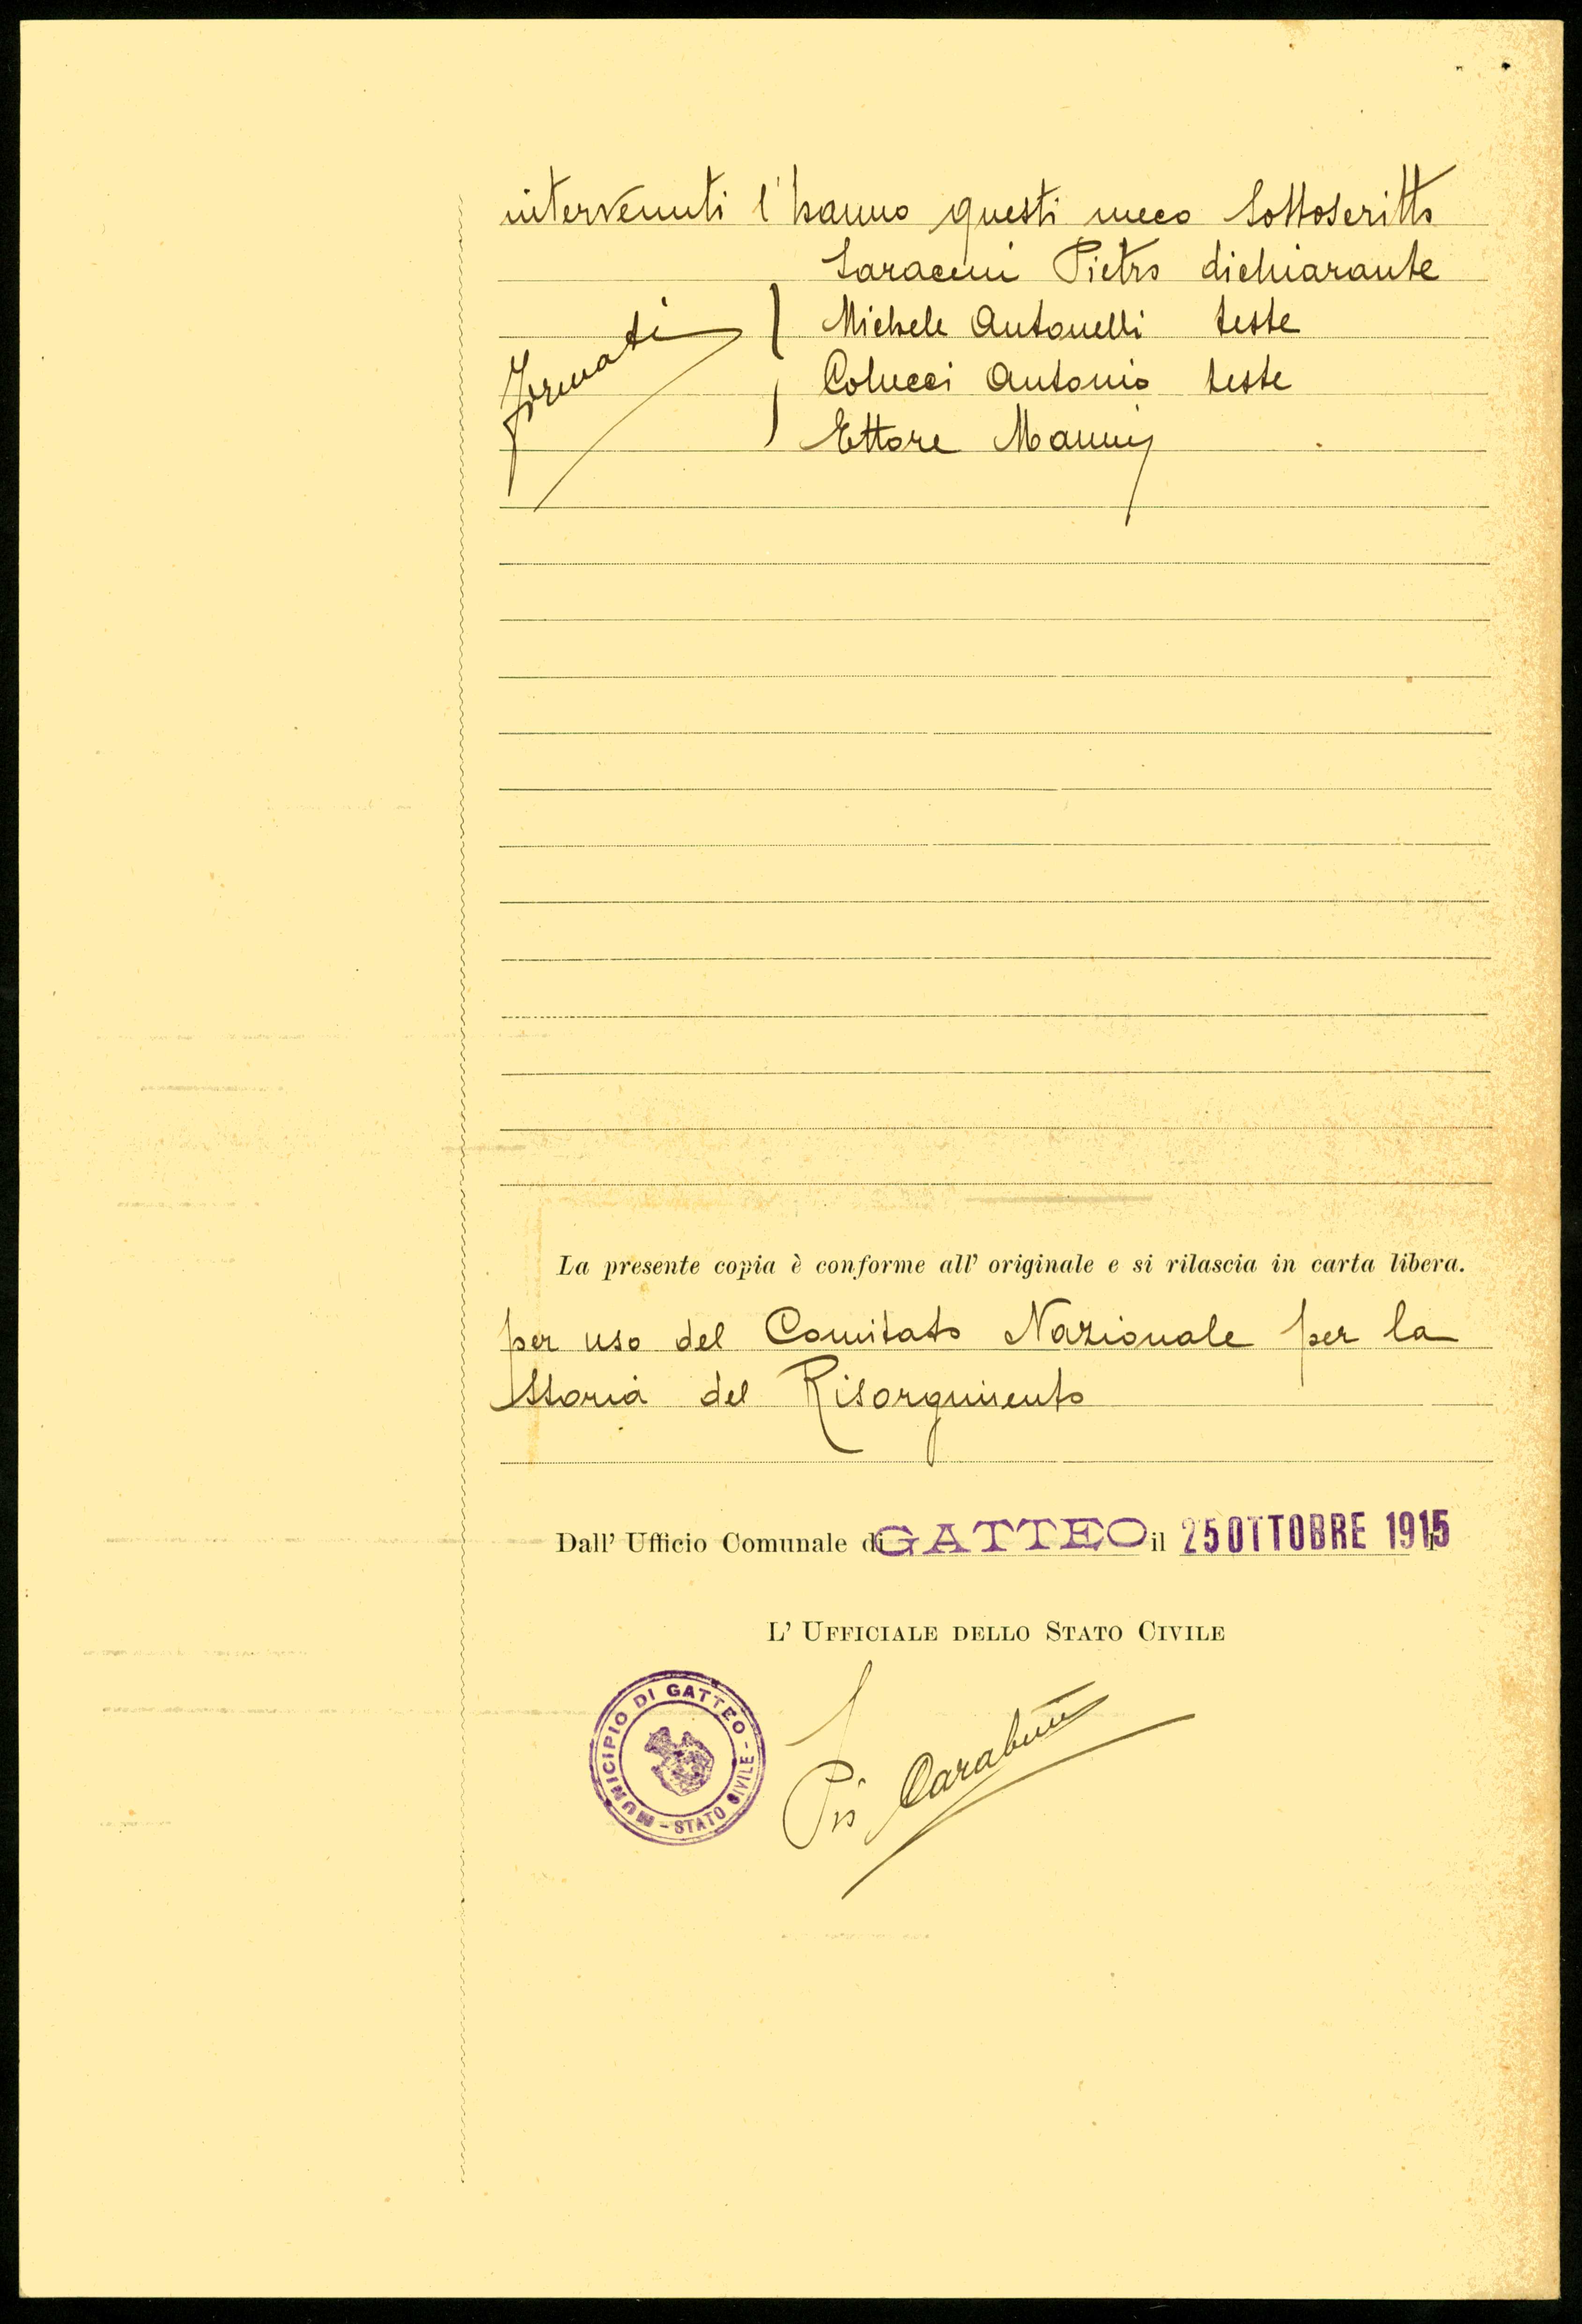 intervenuti l'hanno questi meco sottoscritto
Saraceni Pietro dichiarante
Firmati
Michele Antonelli teste
Colucci Antonio teste
Ettore Manni
La presente copia è conforme all' originale e si rilascia in carta libera.
per uso del Comitato Nazionale per la
Storia del Risorgimento
Dall' Ufficio Comunale di GATTEO il 25 OTTOBRE 1915
L' UFFICIALE DELLO STATO CIVILE
MUNICIPIO DI GATTEO - STATO CIVILE -